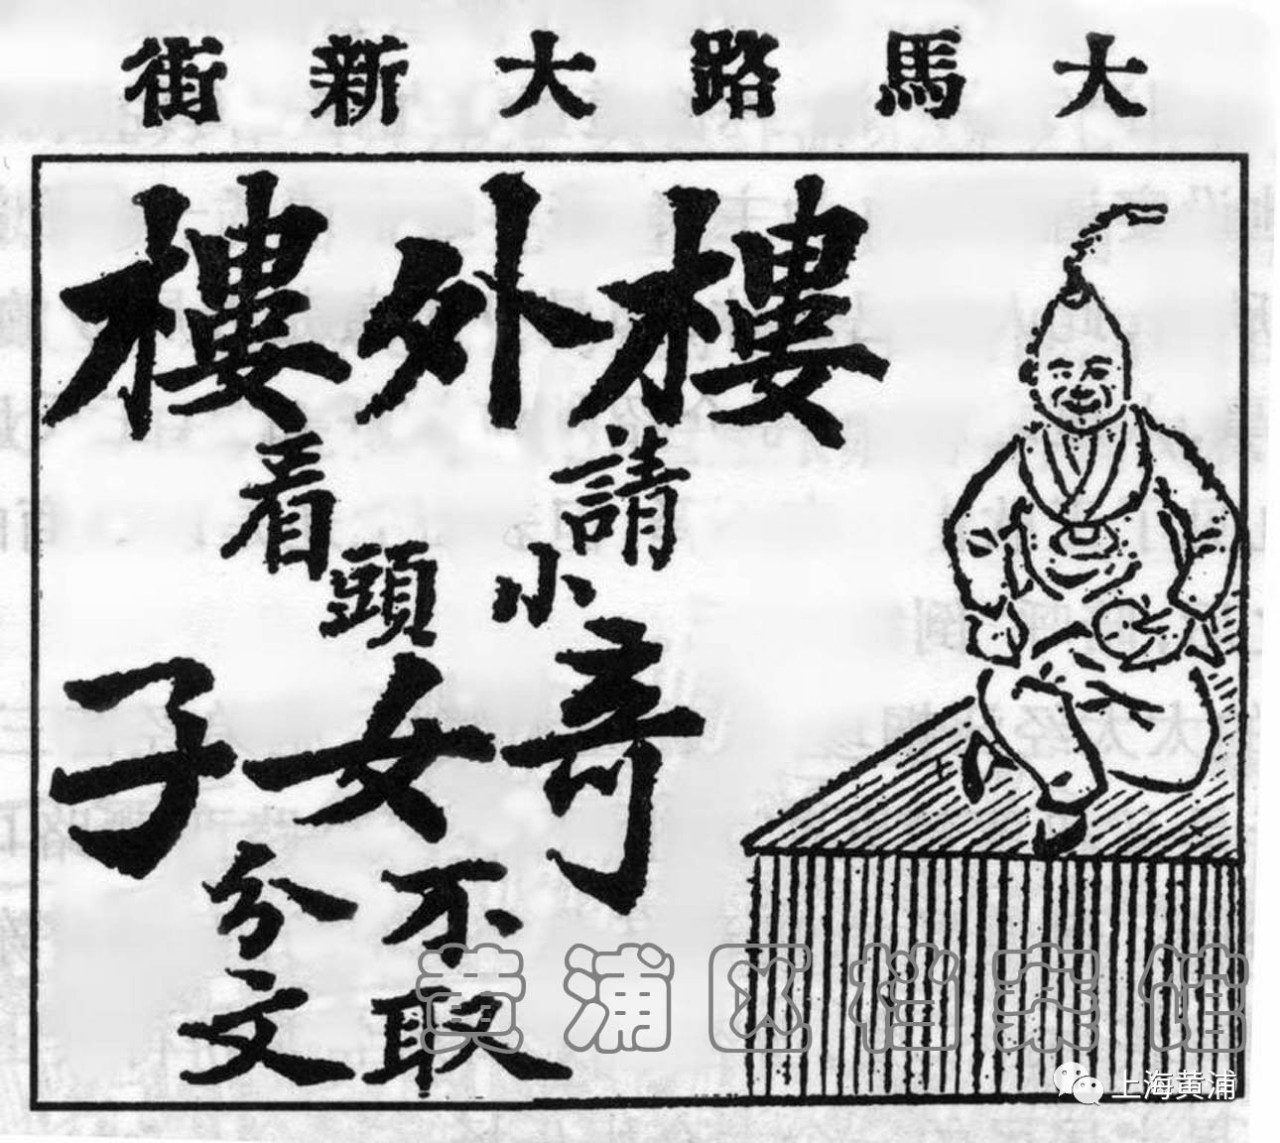 大馬路大新街
樓外樓
請看
小頭
奇女子
不取
分文
黄浦区档案馆
上海黄浦